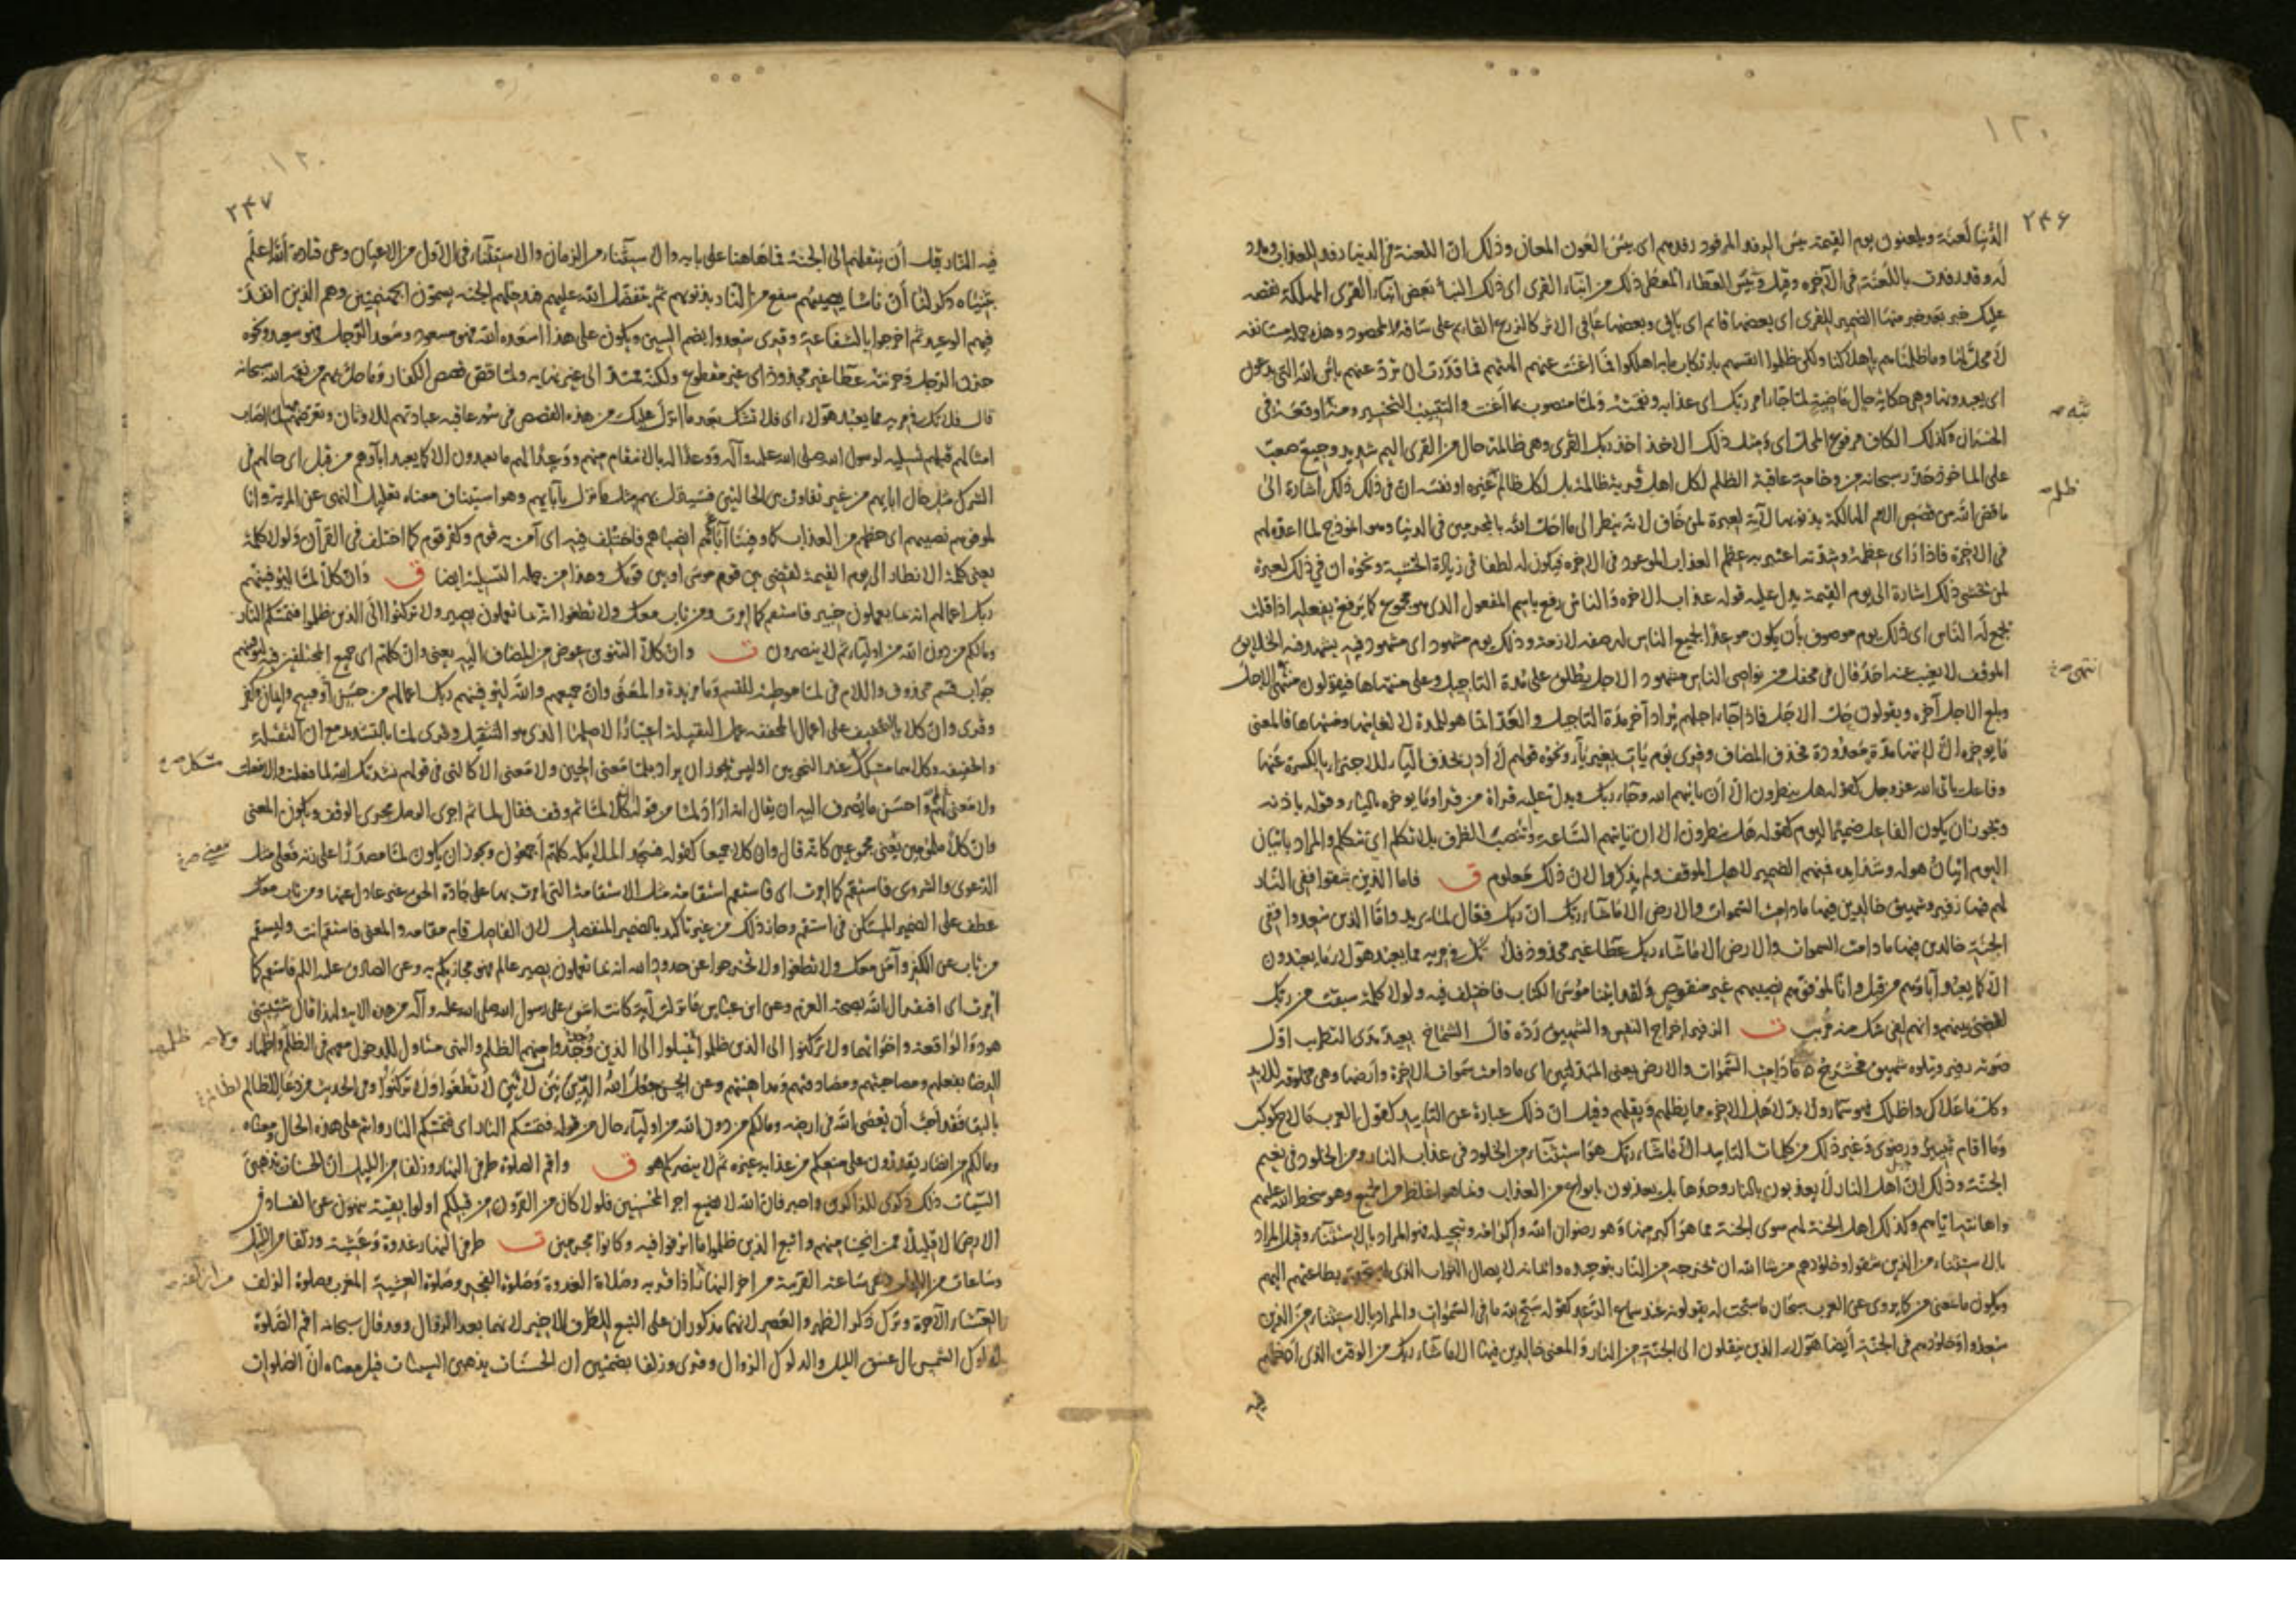 ١٢٠
٢٤۶
الدنيا لعنة ويلعنون يوم القيمة بئس الرفد المرفود رفدهم اى بئس العون المعان وذلك ان اللعنة فى الدنيا رفد للعذاب ومدد
له وقد رفدت باللعنة فى الآخرة وقيل بئس العطاء المعطى ذلك من انباء القرى اى ذلك النبأ بعض انباء القرى المهلكة نقصه
عليك خبر بعد خبر منها الضمير للقرى اى بعضها قائم اى باق وبعضها عافى الاثر كالزرع القائم على ساقه والمحصود وهذه جملة مستانفة
لا محل لها وما ظلمناهم باهلاكنا ولكن ظلموا انفسهم بارتكاب ما به اهلكوا فما اغنت عنهم الهتهم فما قدرت ان ترد عنهم باس الله التى يدعون
اى يعبدونها وهى حكاية حال ماضية لما جاء امر ربك اى عذابه ونقمته ولما منصوب بما اغنت والتتبيب التخسير ومنه اوقعه فى
الخسران وكذلك الكاف مرفوع المحل اى ومثل ذلك الاخذ اخذ ربك القرى وهى ظالمة حال من القرى اليم شديد وجيع صعب
على الماخوذ حذر سبحانه من وخامة عاقبة الظلم لكل اهل قرية ظالمة بل لكل ظالم غيره او نفسه ان فى ذلك ذلك اشارة الى
ما قص الله من قصص الامم الهالكة بذنوبها لآية لعبرة لمن خاف لانه ينظر الى ما احل الله بالمجرمين فى الدنيا وهو انموذج لما اعد لهم
فى الاخرة فاذا راى عظمه وشدته اعتبر به عظم العذاب الموعود فى الاخرة فيكون له لطفا فى زيادة الخشية ونحوه ان فى ذلك لعبرة
لمن يخشى ذلك اشارة الى يوم القيمة يدل عليه قوله عذاب الاخرة والناس رفع باسم المفعول الذى هو مجموع كما يرفع بفعله اذا قلت
يجمع له الناس اى ذلك يوم موصوف بان يكون موعدا لجمع الناس له صفة لازمة وذلك يوم مشهود اى مشهود فيه يشهد فيه الخلايق
الموقف لا يغيب عنه احد قال فى محفل من نواصى الناس مشهود الاجل يطلق على مدة التاجيل وعلى منتهاها فيقولون منتهى الاجل
وبلغ الاجل آخره ويقولون حل الاجل فاذا جاء اجلهم يراد آخر مدة التاجيل والعد انما هو للمدة لا لغايتها ومنتهاها فالمعنى
ما يوخره الا لانتهاء مدة معدودة بحذف المضاف وقرى يوم يات بغير ياء ونحوه قولهم لا ادر بحذف الياء للاجتزاء بالكسرة عنها
وفاعل ياتى الله عز وجل كقوله هل ينظرون الا ان ياتيهم الله وجاء ربك ويدل عليه قراة من قرا وما يوخره بالياء وقوله باذنه
ويجوز ان يكون الفاعل ضمير اليوم كقوله هل ينظرون الا ان تاتيهم الساعة وانتصب الظرف بلا تكلم اى تتكلم والمراد باتيان
اليوم اتيان هوله وشدايده فمنهم الضمير لاهل الموقف ولم يذكروا لان ذلك معلوم ق فاما الذين شقوا ففى النار
لهم فيها زفير وشهيق خالدين فيها ما دامت السموات والارض الا ما شاء ربك ان ربك فعال لما يريد واما الذين سعدوا ففى
الجنة خالدين فيها ما دامت السموات والارض الا ما شاء ربك عطاء غير مجذوذ فلا تك فى مرية مما يعبد هولاء ما يعبدون
الا كما يعبد آباؤهم من قبل وانا لموفوهم نصيبهم غير منقوص ولقد اتينا موسى الكتاب فاختلف فيه ولولا كلمة سبقت من ربك
لقضى بينهم وانهم لفى شك منه مريب ت الزفير اخراج النفس والشهيق رده قال الشماخ بعيد مدى التطريب اول
صوته زفير ويتلوه شهيق محشرج ما دامت السموات والارض يعنى المبدلتين اى ما دامت سموات الاخرة وارضها وهى مخلوقة للابد
وكل ما علاك واظلك فهو سماء ولا بد لاهل الاخرة مما يظلهم ويقلهم وقيل ان ذلك عبارة عن التابيد كقول العرب ما لاح كوكب
وما اقام ثبير ورضوى وغير ذلك من كلمات التابيد الا ما شاء ربك هو استثناء من الخلود فى عذاب النار ومن الخلود فى نعيم
الجنة وذلك ان اهل النار لا يعذبون بالنار وحدها بل يعذبون بانواع من العذاب وبما هو اغلظ من الجميع وهو سخط الله عليهم
واهانته اياهم وكذلك اهل الجنة لهم سوى الجنة مما هو اكبر منها وهو رضوان الله واكرامه وتبجيله فهو المراد بالاستثناء وقيل المراد
بالاستثناء من الذين شقوا وخلودهم من يشاء الله ان يخرجه من النار بتوحيده وايمانه لايصال الثواب الذى استحقه بطاعتهم اليهم
ويكون ما بمعنى من كما يروى عن العرب سبحان ما سبحت له يقولونه عند سماع الرعد كقوله سبح لله ما فى السموات والمراد بالاستثناء من الذين
سعدوا وخلودهم فى الجنة ايضا هولاء الذين ينقلون الى الجنة من النار والمعنى خالدين فيها الا ما شاء ربك من الوقت الذى ادخلهم
انتهى صح
١٢٠
٢٤٧
فيه النار قبل ان ينقلهم الى الجنة فما هاهنا على بابه والاستثناء من الزمان والاستثناء فى الاول من الاعيان وعن قتادة الله اعلم
بثنياه ذكر لنا ان ناسا يصيبهم سفع من النار بذنوبهم ثم يتفضل الله عليهم فيدخلهم الجنة يسمون الجهنميين وهم الذين انفذ
فيهم الوعيد ثم اخرجوا بالشفاعة وقرى سعدوا بضم السين ويكون على هذا اسعده الله فهو مسعود وسعد الرجل فهو سعيد ونحوه
حزن الرجل وحزنته عطاء غير مجذوذ اى غير مقطوع ولكنه ممتد الى غير نهاية ولما قص قصص الكفار وما حل بهم من نقمة الله سبحانه
قال فلا تك فى مرية مما يعبد هولاء اى فلا تشك بعد ما انزل عليك من هذه القصص فى سوء عاقبة عبادتهم للاوثان وتعرضهم لما اصاب
امثالهم قبلهم تسلية لرسول الله صلى الله عليه وآله ووعدا له بالانتقام منهم ووعيدا لهم ما يعبدون الا كما يعبد اباوهم من قبل اى حالهم فى
الشرك مثل حال ابائهم من غير تفاوت بين الحالتين فسينزل بهم مثل ما نزل بابائهم وهو استيناف معناه تعليل النهى عن المرية وانا
لموفوهم نصيبهم اى حظهم من العذاب كما وفينا آباءهم انصباءهم فاختلف فيه اى آمن به قوم وكفر قوم كما اختلف فى القرآن ولولا كلمة
يعنى كلمة الانظار الى يوم القيمة لقضى بين قوم موسى او بين قومك وهذا من جملة التسلية ايضا ق وان كلا لما ليوفينهم
ربك اعمالهم انه بما يعملون خبير فاستقم كما امرت ومن تاب معك ولا تطغوا انه بما تعملون بصير ولا تركنوا الى الذين ظلموا فتمسكم النار
وما لكم من دون الله من اولياء ثم لا ينصرون ت وان كلا التنوين عوض من المضاف اليه يعنى وان كلهم اى جميع المختلفين فيه ليوفينهم
جواب قسم محذوف واللام فى لما موطئة للقسم وما مزيدة والمعنى وان جميعهم والله ليوفينهم ربك اعمالهم من حسن او قبيح وايمان وكفر
وقرى وان كلا بالتخفيف على اعمال المخففة عمل الثقيلة اعتبارا لاصلها الذى هو التثقيل وقرى لما بالتشديد مع ان الثقيلة
والخفيفة وكلاهما مشكل عند النحويين اذ ليس يجوز ان يراد بلما معنى الحين ولا معنى الا كالتى فى قولهم نشدتك الله لما فعلت والا فعلت
ولا معنى لم واحسن ما يصرف اليه ان يقال انه اراد لما من قوله اكلا لما ثم وقف فقال لما ثم اجرى الوصل مجرى الوقف ويكون المعنى
وان كلا ملمومين يعنى مجموعين كانه قال وان كلا جميعا كقوله فسجد الملائكة كلهم اجمعون ويجوز ان يكون لما مصدرا على زنة فعلى مثل
الدعوى والشروى فاستقم كما امرت اى فاستقم استقامة مثل الاستقامة التى امرت بها على جادة الحق غير عادل عنها ومن تاب معك
عطف على الضمير المستكن فى استقم وجاز ذلك من غير تاكيد بالضمير المنفصل لان الفاصل قام مقامه والمعنى فاستقم انت وليستقم
من تاب عن الكفر وآمن معك ولا تطغوا ولا تخرجوا عن حدود الله انه بما تعملون بصير عالم فهو مجازيكم به وعن الصادق عليه السلم فاستقم كما
امرت اى افتقر الى الله بصحة العزم وعن ابن عباس ما نزلت آية كانت اشق على رسول الله صلى الله عليه وآله من هذه الاية ولهذا قال شيبتنى
هود والواقعة واخواتها ولا تركنوا الى الذين ظلموا
الرضا بفعلهم ومصاحبتهم ومصادقتهم ومداهنتهم وعن الحسن جعل الله الدين بين لائين لا تطغوا ولا تركنوا وفى الحديث من دعا لظالم
بالبقاء فقد احب ان يعصى الله فى ارضه وما لكم من دون الله من اولياء حال من قوله فتمسكم النار اى فتمسكم النار وانتم على هذه الحال ومعناه
وما لكم من انصار يقدرون على منعكم من عذابه غيره ثم لا ينصركم هو ق واقم الصلوة طرفى النهار وزلفا من الليل ان الحسنات يذهبن
السيئات ذلك ذكرى للذاكرين واصبر فان الله لا يضيع اجر المحسنين فلولا كان من القرون من قبلكم اولوا بقية ينهون عن الفساد فى
الارض الا قليلا ممن انجينا منهم واتبع الذين ظلموا ما اترفوا فيه وكانوا مجرمين ت طرفى النهار غدوة وعشية وزلفا من الليل
وساعات من الليل وهى ساعاته القريبة من اخر النهار اذا قربه وصلاة الغدوة وصلوة الفجر وصلوة العشية المغرب وصلوة الزلف
العشاء الآخرة وترك ذكر الظهر والعصر لانهما مذكوران على التبع للطرف الاخير لانهما بعد الزوال وقد قال سبحانه اقم الصلوة
لدلوك الشمس الى غسق الليل والدلوك الزوال وقرى وزلفا بضمتين ان الحسنات يذهبن السيئات قيل معناه ان الصلوات